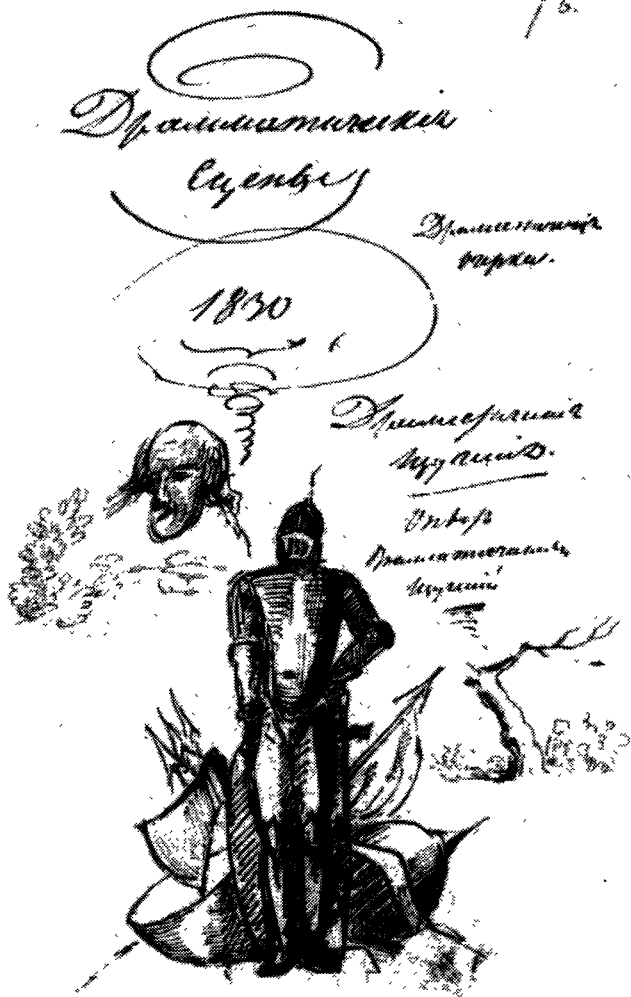 Драмматическія
Сцены
Драматическіе
очерки.
1830
Драматическія
Изученія.
Опытъ
Драматическихъ
Изученій